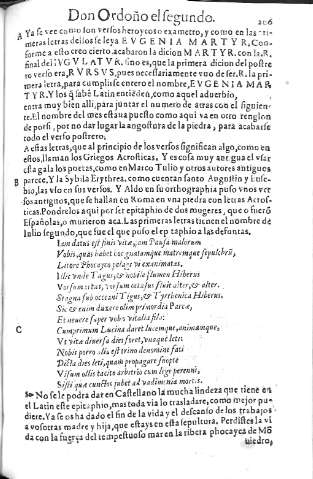 Don Ordoño el segundo. 206
A Ya se vee como son versos heroycos o exametro, y como en las primeras letras dellos se leya EVGENIA MARTYR. Conforme a esto creo cierto acabaron la dicion MARTYR. con la .R,
final del IVGVLATVR. sino es, que la primera dicion del postrero verso era, RVRSVS, pues necesariamente vuo de ser .R. la primera letra, para cumplirse entero el nombre, EVGENIA MARTYR. Y los que saben Latin entiēden, como aquel aduerbio,
entra muy bien alli, para juntar el numero de atras con el siguiente. El nombre del mes estaua puesto como aqui va en otro renglon
de por si, por no dar lugar la angostura de la piedra, para acabarse
todo el verso postrero.
A estas letras, que al principio de los versos significan algo, como en
estos, llaman los Griegos Acrosticas, Y es cosa muy antigua el vsar
esta gala los poetas, como en Marco Tulio y otros autores antiguos
B parece, Y la Sybila Erythrea, como cuentan santo Augustin y Eusebio, las vso en sus versos. Y Aldo en su orthographia puso vnos versos antiguos, que se hallan en Roma en vna piedra con letras Acrosticas. Pondrelos aqui por ser epitaphio de dos mugeres, que o fuerō
Españolas, o murieron aca. Las primeras letras tienen el nombre de
Iulio segundo, que fue el que puso el epitaphio a las defuntas.
Iam datus est finis vitæ, iam Pausa malorum
Vobis, quas habet hoc gnatamque matremque sepulchrū,
Litore Phocaico pelagi vi exanimatas,
Illic vnde Tagus, & nobile flumen Hiberus
Vorsum ortus, vorsum occasus fluit alter, & alter.
Stagna sub oceani Tagus, & Tyrrhenica Hiberus.
Sic & enim duxere olim primordia Parcæ,
Et neuere super vobis vitalia fila:
C Cumprimum Lucina daret lucemque, animamque,
Vt vitæ diuersa dies foret, vnaque leti.
Nobis porro alia est trino denomine fati
Dicta dies leti, quam propagare suopte
Visum ollis tacito arbitrio cum lege perenni,
Sisti quæ cunctos iubet ad vadimonia mortis.
No se le podra dar en Castellano la mucha lindeza que tiene en
el Latin este epitaphio, mas toda via lo trasladare, como mejor pudiere. Ya se os ha dado el fin de la vida y el descanso de los trabajos
a vosotras madre y hija, que estays en esta sepultura. Perdistes la vida con la fuerça del tempestuoso mar en la ribera phocayca de Mō
uiedro,